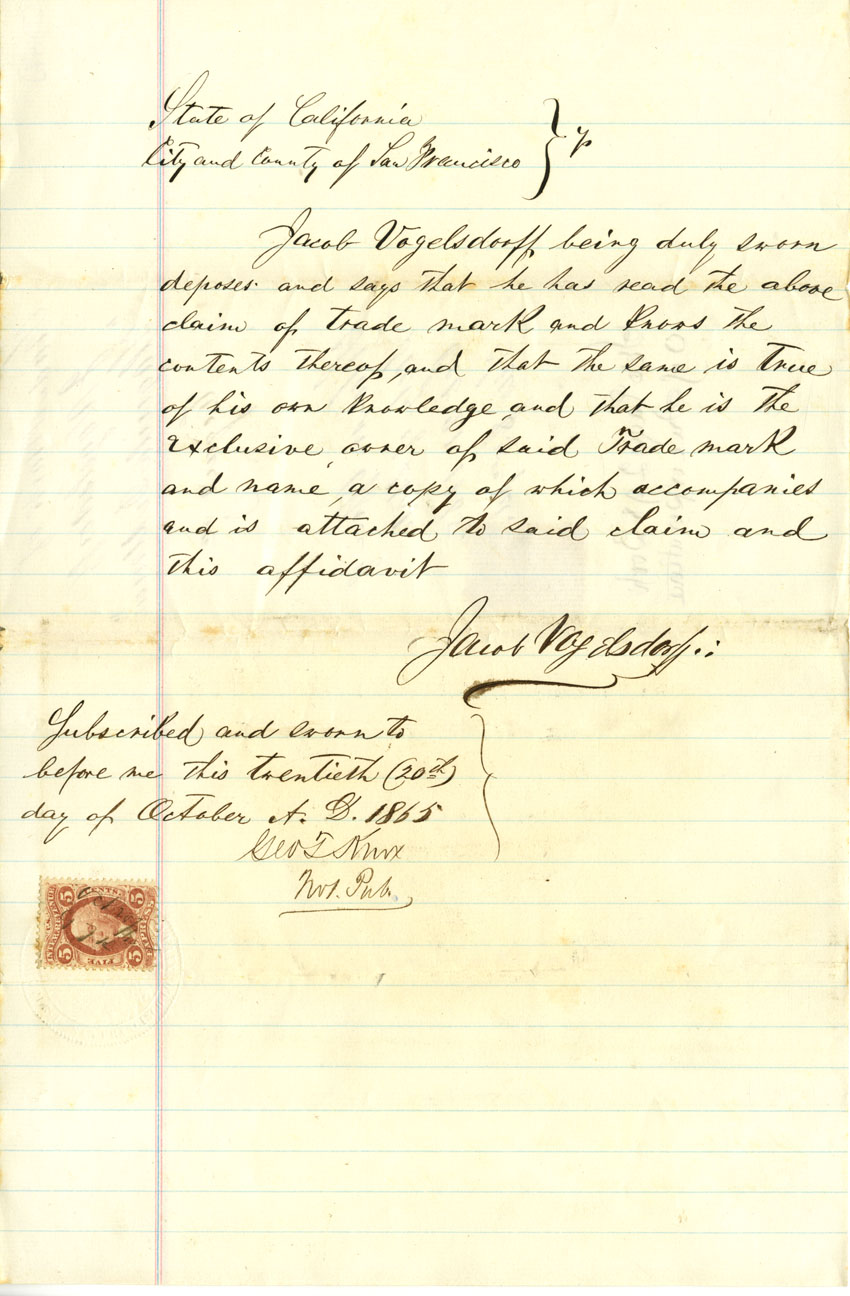 State of California
City and County of San Francisco } ss
Jacob Vogelsdorff being duly sworn
deposes and says that he has read the above
claim of trade mark and knows the
contents thereof, and that the same is true
of his own knowledge, and that he is the
exclusive, owner of said Trade mark
and name, a copy of which accompanies
and is attached to said claim and
this affidavit
Jacob Vogelsdorff
Subscribed and sworn to
before me this twentieth (20th)
day of October A. D. 1865
Geo T Knox
Not. Pub.
5 5
5 FIVE 5